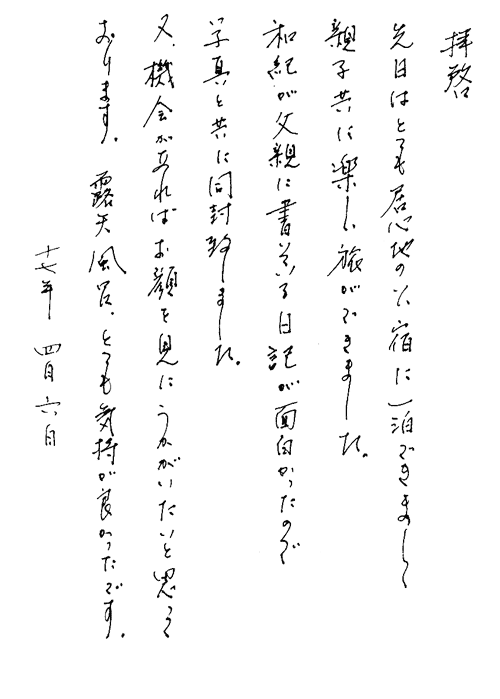 拝啓
先日はとても居心地のいい宿に一泊できまして
親子共に楽しい旅ができました。
和紀が父親に書いている日記が面白かったので
写真と共に同封致しました。
又、機会があればお顔を見にうかがいたいと思って
おります。 露天風呂、とても気持が良かったです。
十七年 四月六日